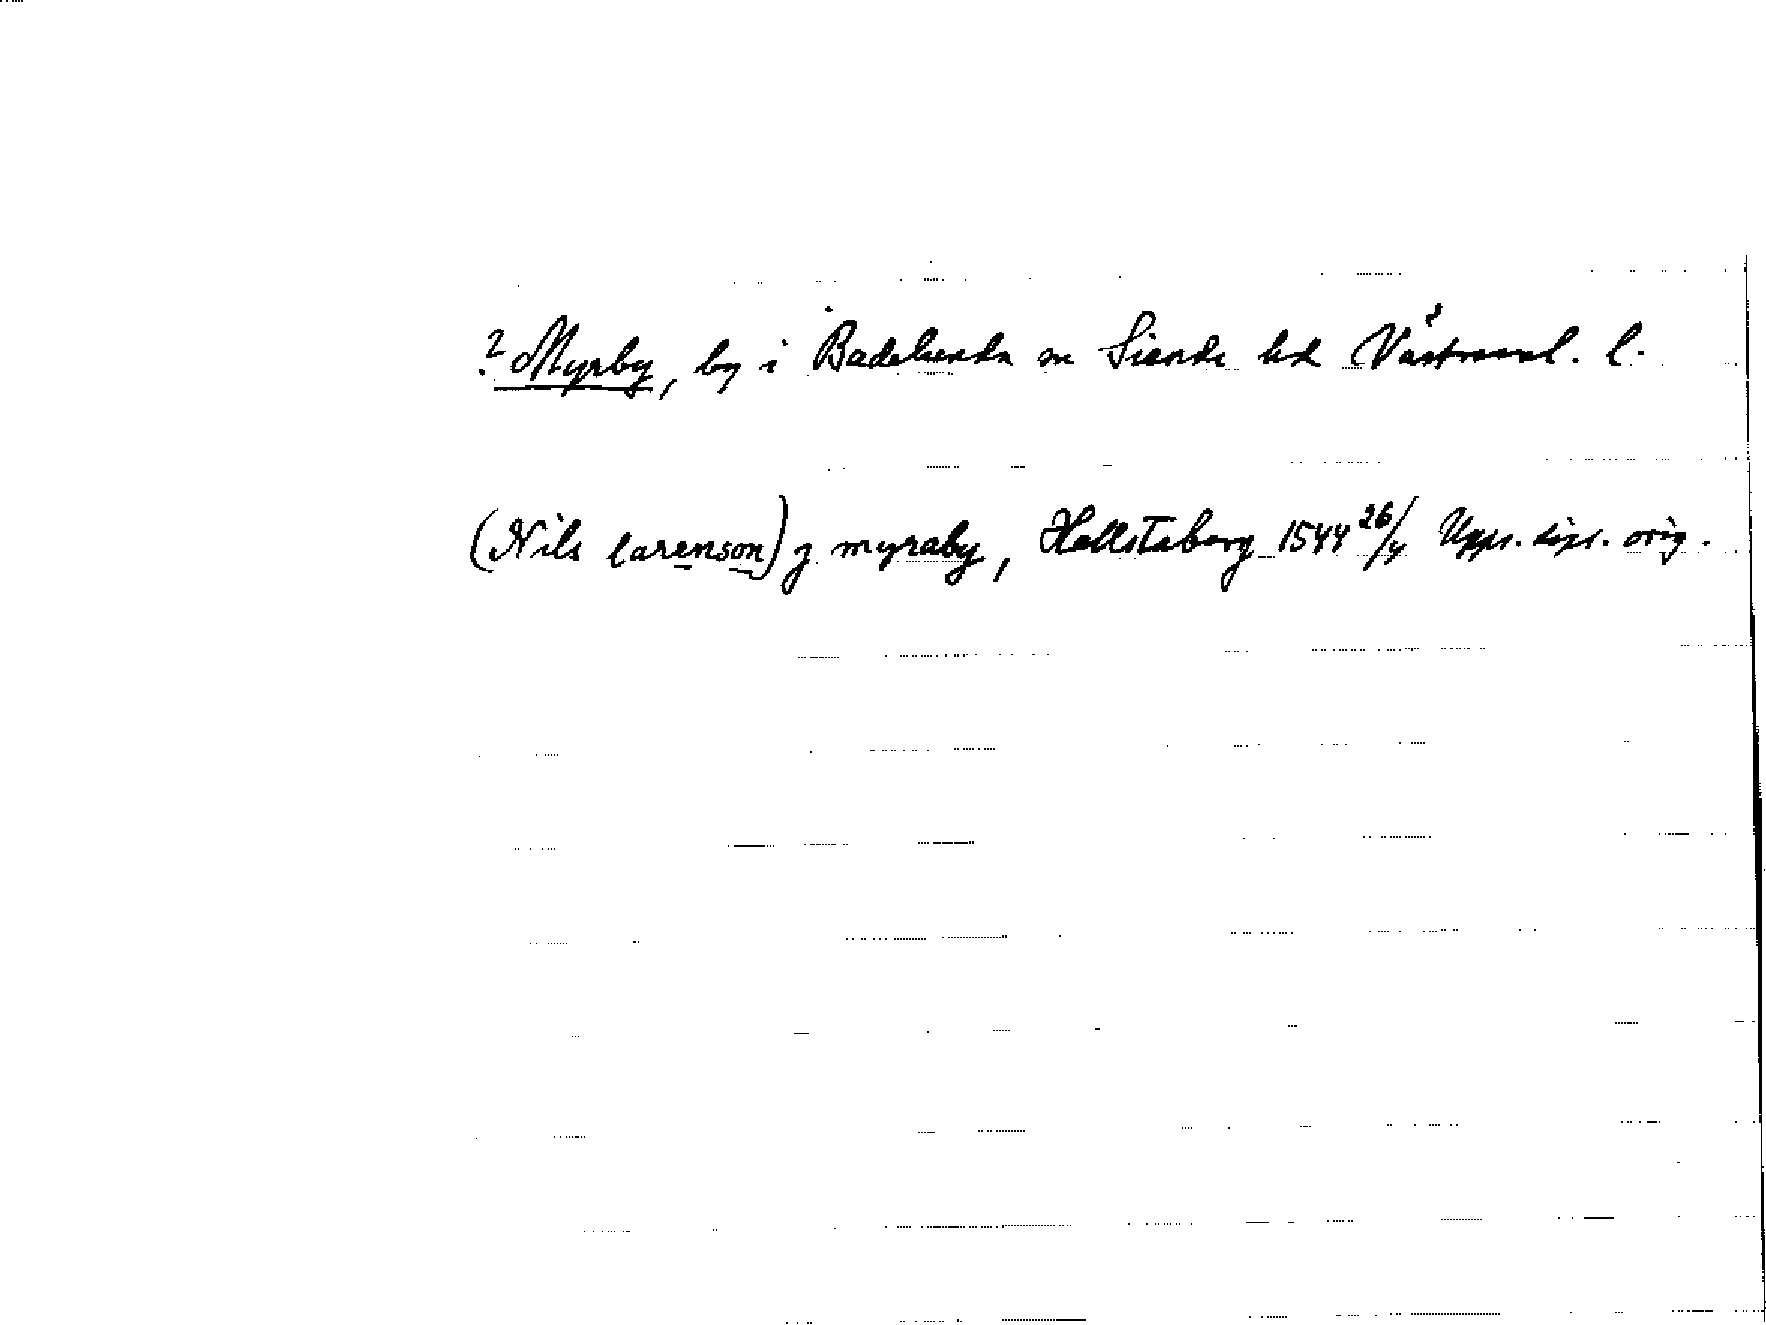 ? Myrby, by i Badelunda sn Siende hd Västmanl. l.
(Nils larenson) j myraby, Hallstaberg 1544 26/4 Upps. dipl. orig.